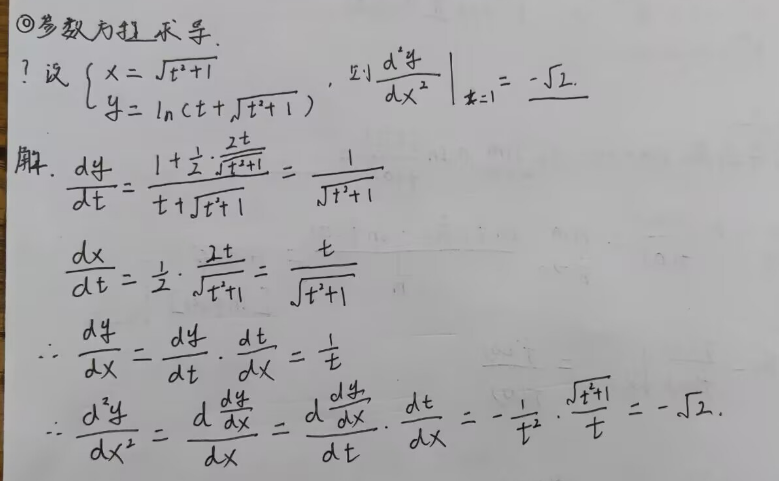 ◎参数方程求导.
? 设 { x = √(t²+1) y = ln(t+√(t²+1)) , 则 d²y/dx² |ₜ₌₁ = -√2.
解. dy/dt = (1 + 1/2 · 2t/√(t²+1)) / (t+√(t²+1)) = 1/√(t²+1)
dx/dt = 1/2 · 2t/√(t²+1) = t/√(t²+1)
∴ dy/dx = dy/dt · dt/dx = 1/t
∴ d²y/dx² = d(dy/dx)/dx = d(dy/dx)/dt · dt/dx = -1/t² · √(t²+1)/t = -√2.